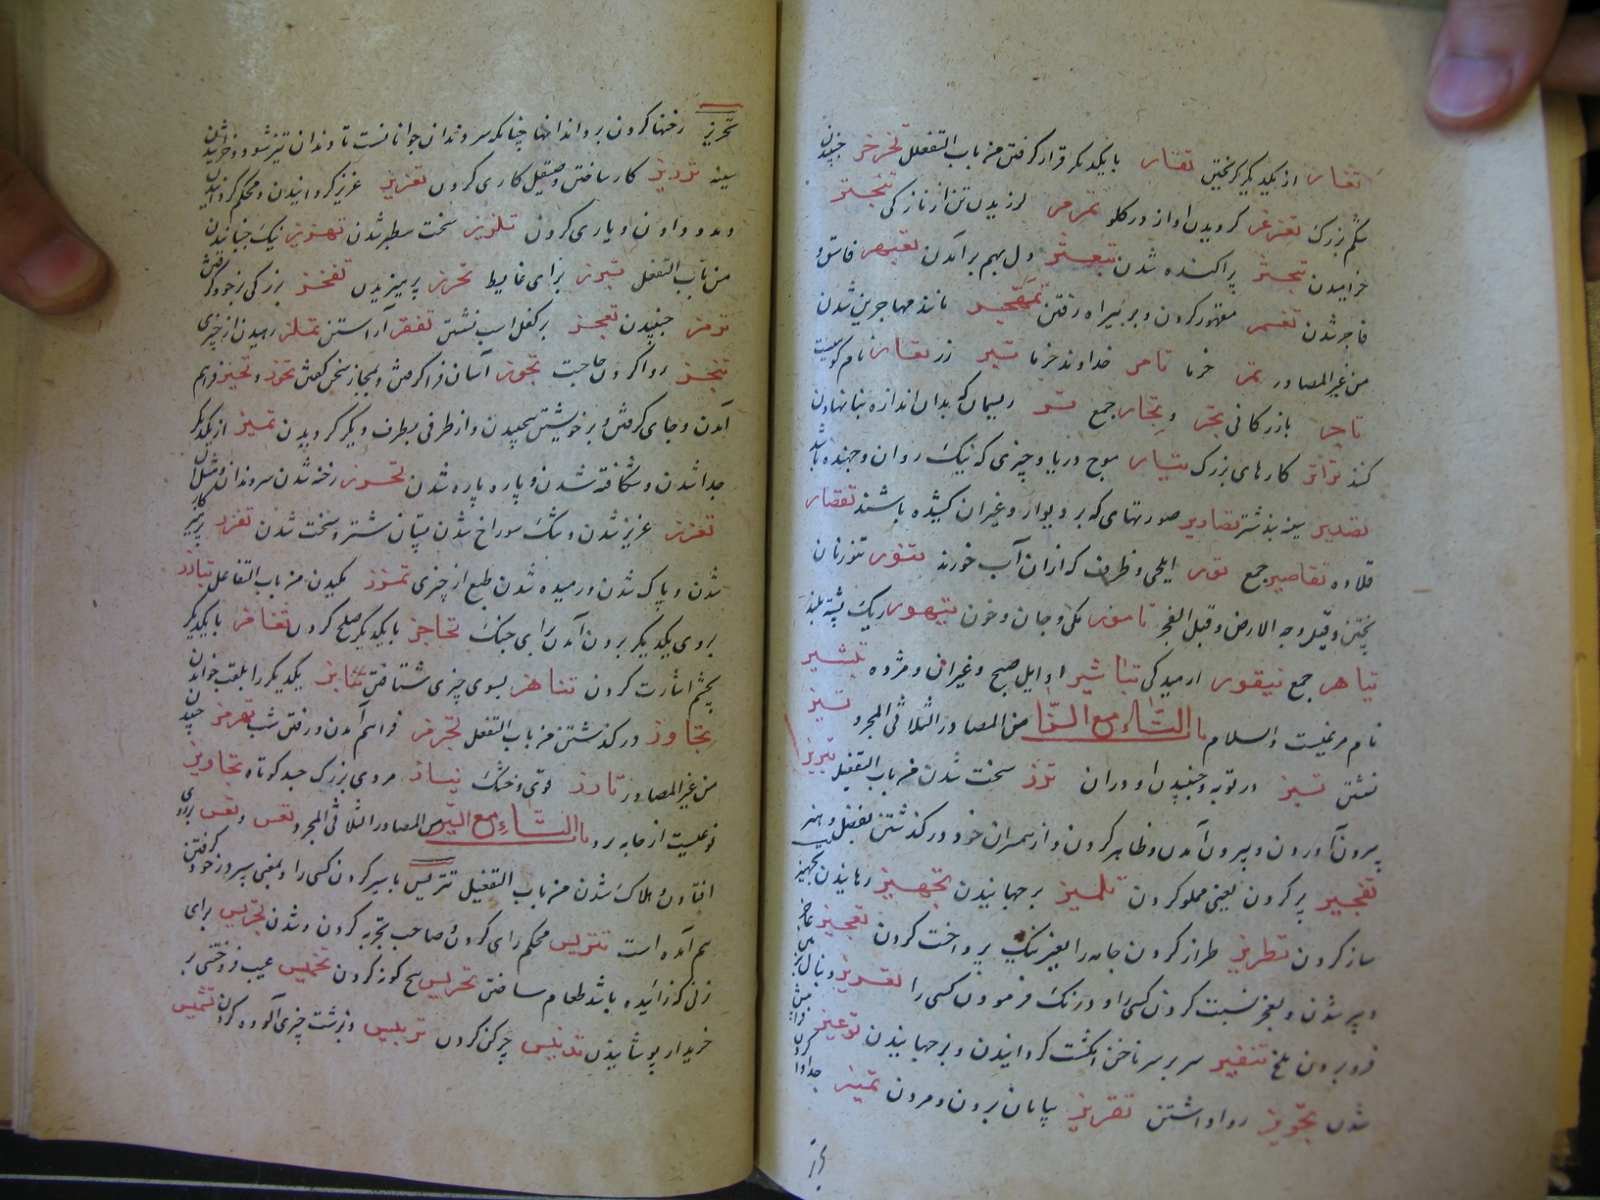 تفار از یکدیگر گریختن تقار با یکدیگر قرار گرفتن من باب التفعلل تخرخر جنبیدن
شکم بزرک تغرغر گردیدن اواز در گلو تمرمر لرزیدن تن از نازکی تبختر
خرامیدن تبحثر پراکنده شدن تبعثر دل بهم برآمدن تعیهر فاسق و
فاجر شدن تقسر مقهور کردن و بر بیراه رفتن تمهجر مانند مهاجرین شدن
من غیر المصادر تمر خرما تامر خداوند خرما تبر زر تعار نام کوهیست
تاجر بازرکانی تجر و تجار جمع تر ریسمان که بدان اندازه بنا نهادن
کنند تراتر کارهای بزرک تیار موج دریا و چیزی که نیک روان و جهنده باشد
تصدیر سینه بند شتر تصاویر صورتهای که بر دیوار و غیران کشیده باشند تقصار
قلاده تقاصیر جمع تور ایلچی و ظرف که ازان آب خورند تنور تنور نان
پختن و قیل وجه الارض و قبل الفجر تامور دل و جان و خون تیهور ریک پشته بلند
تیاهر جمع تیقور ارمیدکی تباشیر اوایل صبح و غیران و مژده تبشیر
نام مرغیست والسلام باب التاء مع الزا من المصادر الثلاثی المجرد
نشتن تبز در توبه و جنبیدن او دران ترز سخت شدن من باب التفعیل تبریز
بیرون آوردن و بیرون آمدن و ظاهر کردن و از همسران خود در کذشتن بفضل و هنر
تفجیز پر کردن یعنی مملو کردن تلمیز برجهانیدن تجهیز رهانیدن تجهیز
ساز کردن تطریز طراز کردن جامه را یعنی نیک پرداخت کردن تعجیز عاجز
و پیر شدن و بعجز نسبت کردن کسی را و درنک فرمودن کسی را تغریز
فرو بردن ملخ تنفیز سر بر سر ناخن انکشت کردانیدن و برجهانیدن توعیز
شدن تجویز روا داشتن تقریز پایان بردن و مردن تمیز جدا
تحزیز رخنها کردن بر دندانها چنانکه سر دندان جوانانست تا دندان تیز شود و خراشیدن
سینه تزریز کار ساختن و صیقل کاری کردن تعزیز عزیز کردانیدن و محکم کردانیدن
و مدد دادن و یاری کردن تلزیز سخت سطبر شدن تهزیز نیک جنبانیدن
من باب التفعل تبرز برای غایط تحرز پرهیزیدن تفخز بزرکی بر خود کرفتن
ترمز جنبیدن تعجز بر کفل اسب نشستن تفقز آراستن تملز رهیدن از چیزی
تنجز روا کردن حاجت تجوز آسان فرا کرفتن و بمجاز سخن کفتن تحوز و تحیز فراهم
آمدن و جای کرفتن و بر خویشتن پیچیدن و از طرفی بطرف دیکر کردیدن تمیز از یکدیکر
جدا شدن و شکافته شدن و پاره پاره شدن تحزز رخنه شدن سر دندان
تعزز عزیز شدن و تنک سوراخ شدن پستان شتر و سخت شدن تقزز
شدن و پاک شدن و رمیده شدن طبع از چیزی تمزز مکیدن من باب التفاعل تبارز
بروی یکدیکر برون آمدن برای جنک تحاجز با یکدیکر صلح کردن تغامز با یکدیکر
بچشم اشارت کردن تناهز بسوی چیزی شتافتن تنابز یکدیکر را بلقب خواندن
تجاوز در کذشتن من باب التفعلل تجرمز فراهم آمدن و رفتن شب تهرمز
من غیر المصادر تارز قوی و خشک تیاز مردی بزرک جسد کوتاه تجاویز
نوعیست از جامه برد باب التاء مع السین من المصادر الثلاثی المجرد تعس و تعس بروی
افتادن و هلاک شدن من باب التفعیل تتریس با سپر کردن کسی را و بمعنی سپر و زخود کرفتن
هم آمده است تتریس محکم رای کردن و صاحب تجربه کردن و شدن تخریس برای
زنی که زائیده باشد طعام ساختن تخریس پنج کوز کردن تخمیس عیب فروختنی بر
خریدار پوشانیدن تدنیس چرکن کردن تربیس وزشت چیزی آلوده کردن تشمیس